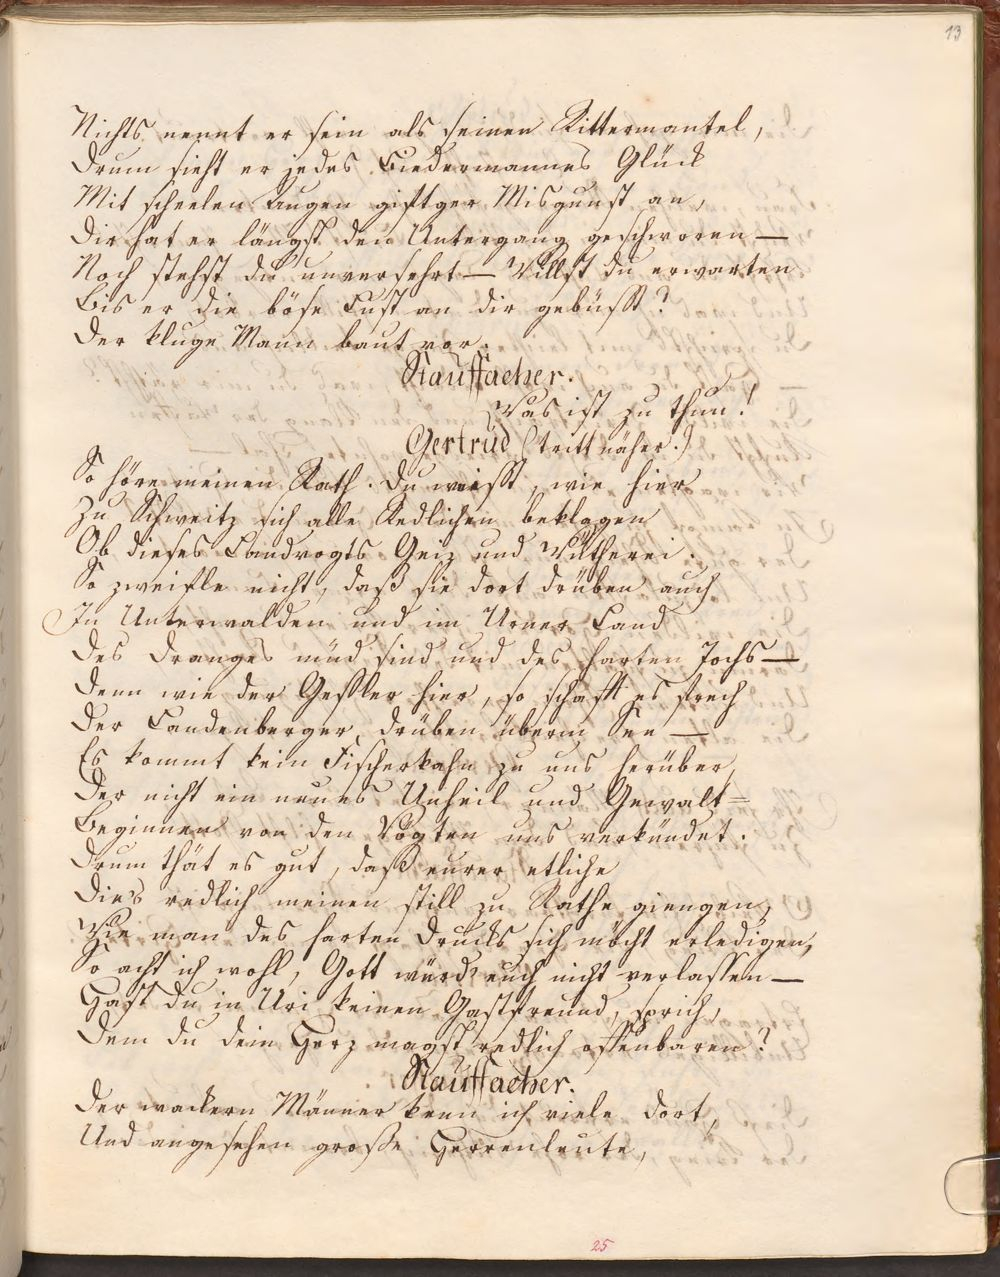 13
Nichts nennt er sein als seinen Rittermantel,
Drum sieht er jedes Biedermannes Glück
Mit scheelen Augen giftger Misgunst an,
Dir hat er längst den Untergang geschworen —
Noch stehst du unversehrt — Willst du erwarten
Bis er die böse Lust an dir gebüßt?
Der kluge Mann baut vor.
Stauffacher.
Was ist zu thun!
Gertrud (tritt näher.)
So höre meinen Rath. Du weißt, wie hier
Zu Schweitz sich alle Redlichen beklagen
Ob dieses Landvogts Geiz und Wütherei.
So zweifle nicht, daß sie dort drüben auch
In Unterwalden und im Urner Land
Des Dranges müd sind und des harten Jochs —
Denn wie der Geßler hier, so schaft es frech
Der Landenberger drüben überm See —
Es kommt kein Fischerkahn zu uns herüber,
Der nicht ein neues Unheil und Gewalt=
Beginnen von den Vögten uns verkündet.
Drum thät es gut, daß eurer etliche
Die's redlich meinen still zu Rathe giengen,
Wie man des harten Drucks sich möcht erledigen,
So acht ich wohl, Gott würd euch nicht verlassen —
Hast du in Uri keinen Gastfreund, sprich,
Dem du dein Herz magst redlich offenbaren?
Stauffacher.
Der wackern Männer kenn ich viele dort,
Und angesehen große Herrenleute,
25